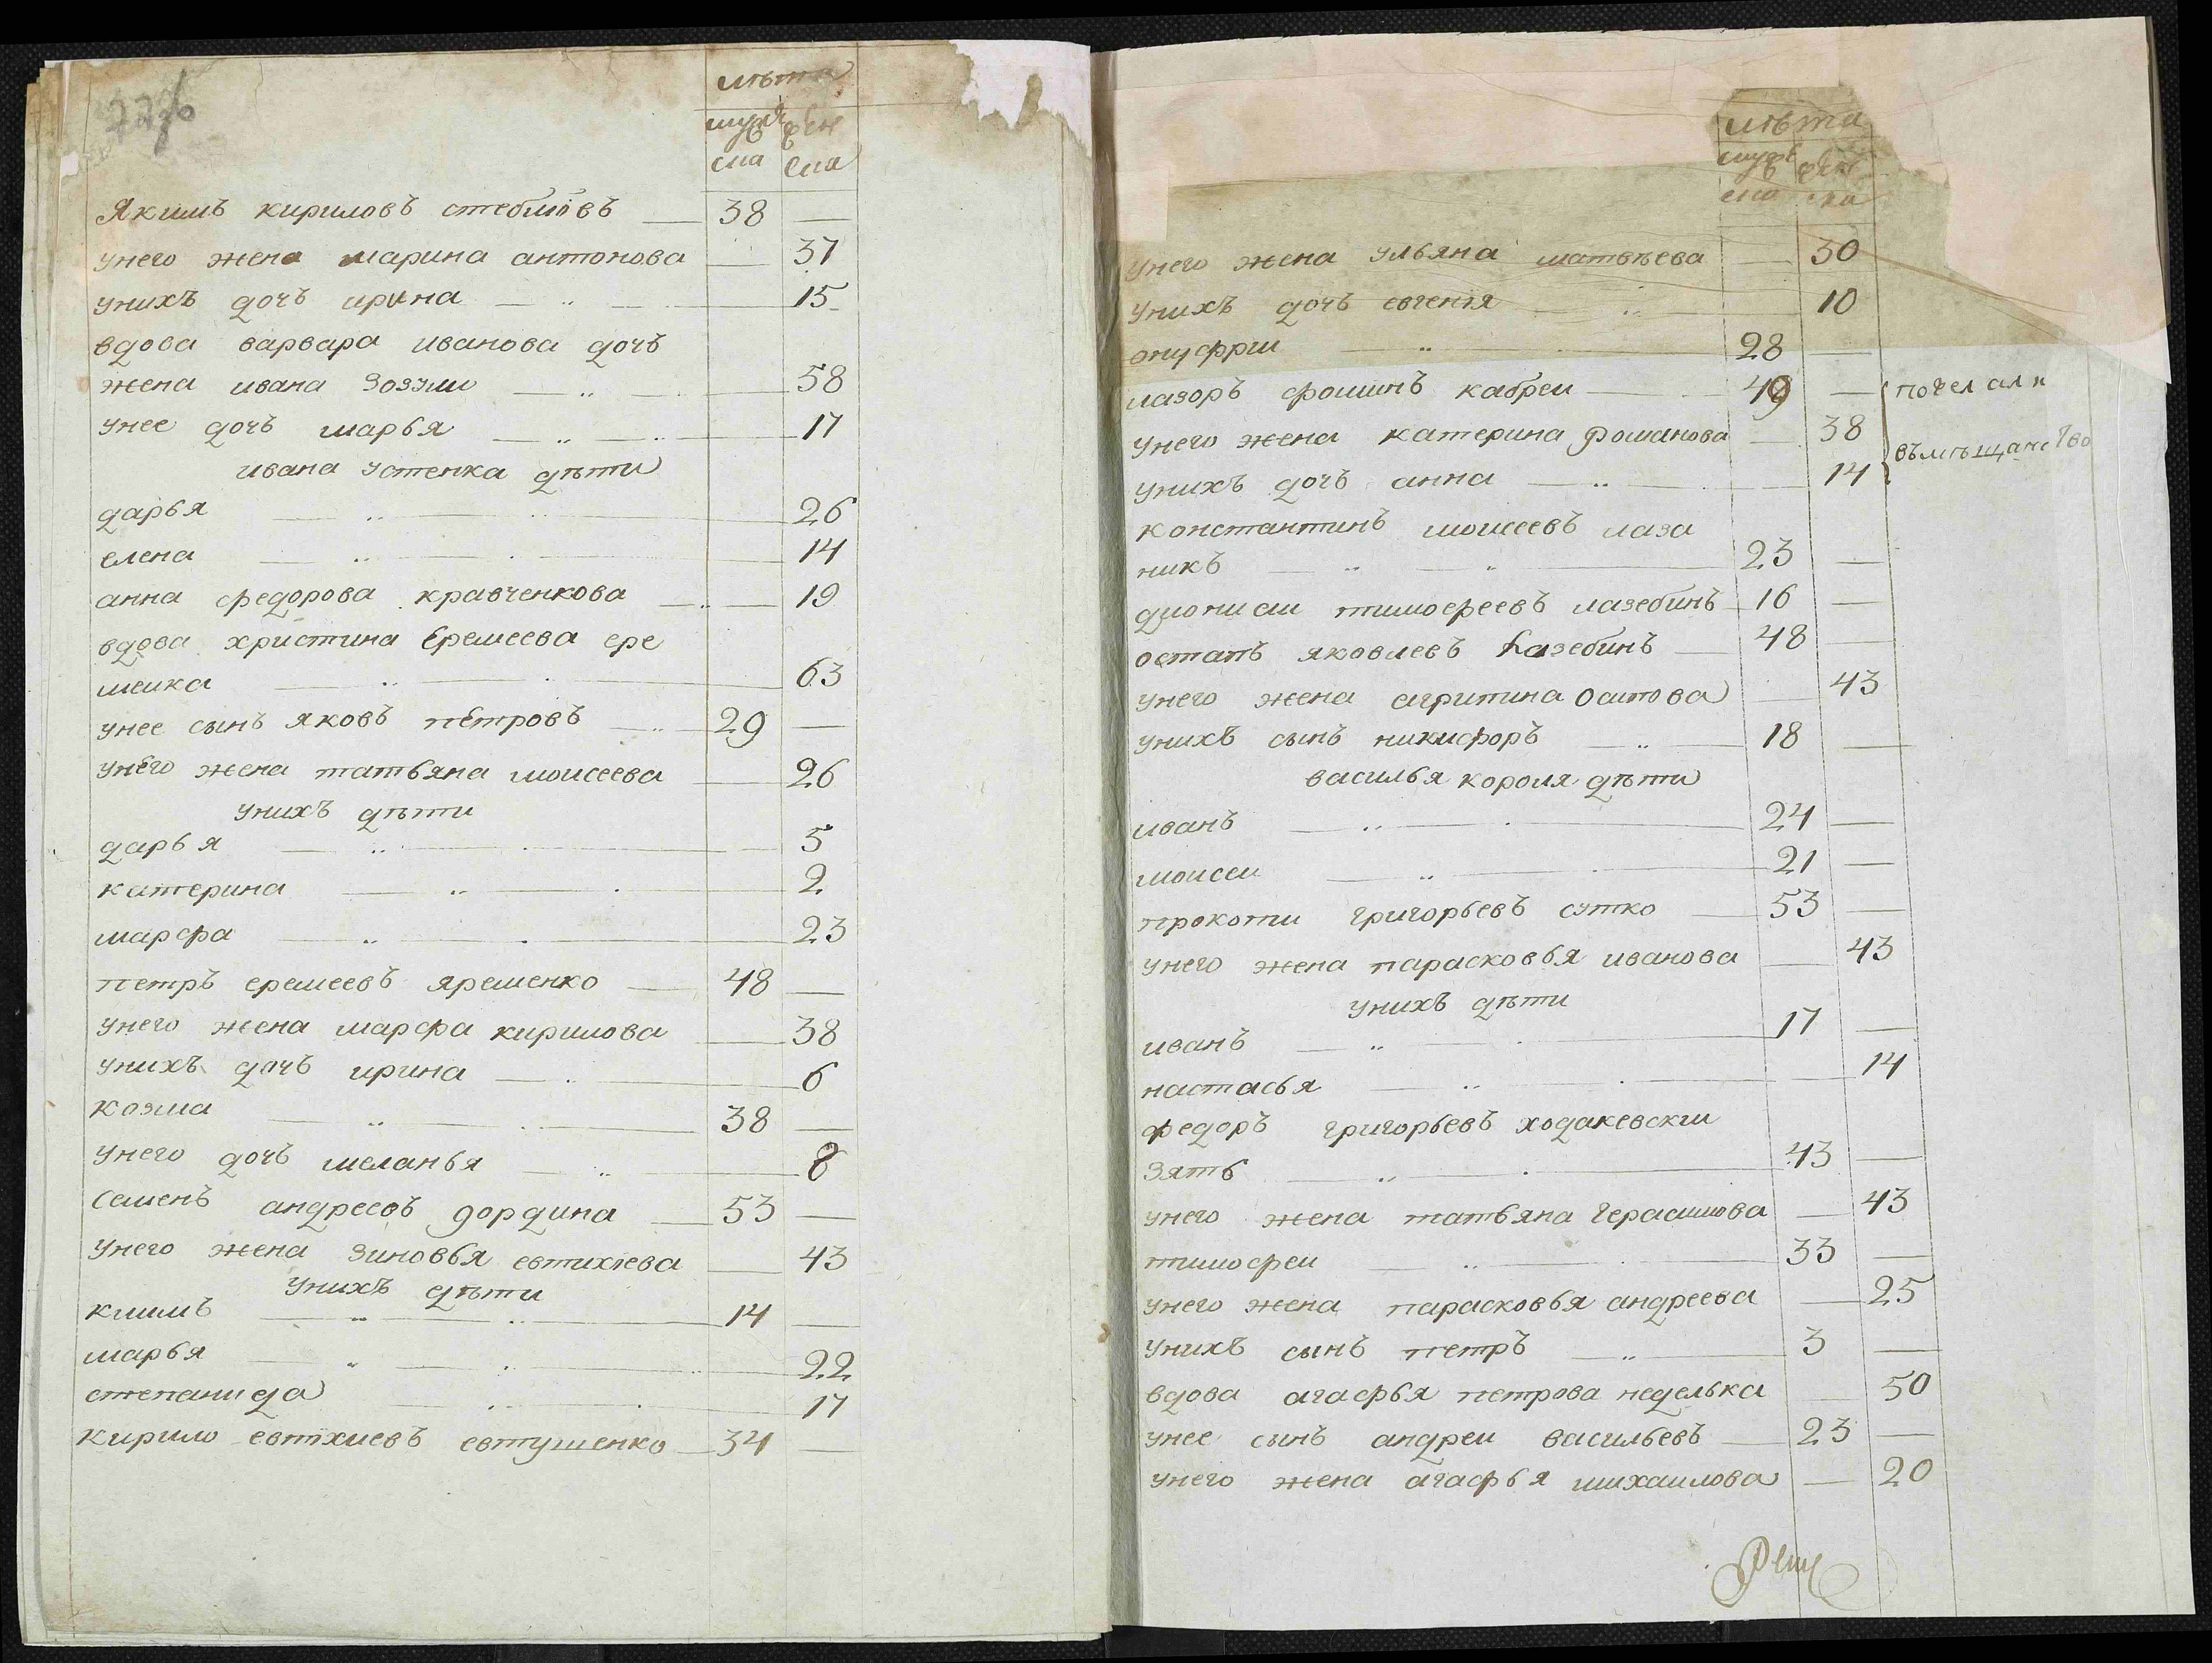 лѣта
мужеска женска
Якимъ кириловъ стеблювъ 38 —
унего жена марина антонова — 37
унихъ дочъ ирина — 15
вдова варвара иванова дочъ
жена ивана зозули — 58
унее дочъ марья — 17
ивана устенка дѣти
дарья — 26
елена — 14
анна федорова кравченкова — 19
вдова христина Еремеева ере
меика — 63
унее сынъ яковъ петровъ 29 —
унего жена татьяна моисеева — 26
унихъ дѣти
дарья — 5
катерина — 2
марфа — 23
петръ еремеевъ яременко 48 —
унего жена марфа кирилова — 38
унихъ дочъ ирина — 6
козма 38 —
унего дочъ меланья — 8
Семенъ андреевъ дордина 53 —
унего жена зиновья евтихіева — 43
унихъ дѣти
климъ 14 —
марья — 22
степанида — 17
кирило евтіхиевъ евтушенко 34 —
лѣта
мужеска женска
унего жена ульяна матвѣева — 30
унихъ дочъ евгенія — 10
онуфрии 28 —
лазоръ фоминъ кабреи 49 —
унего жена катерина романова — 38
унихъ дочъ анна — 14
въмѣщанство
константинъ моисеевъ лаза
никъ 23 —
дионисии тимофеевъ лазебинъ 16 —
остапъ яковлевъ лазебинъ 48 —
унего жена агрипина осипова — 43
унихъ сынъ никифоръ 18 —
василья короля дѣти
иванъ 24 —
моисеи 21 —
прокопи григорьевъ сутко 53 —
унего жена парасковья иванова — 43
унихъ дѣти
иванъ 17 —
настасья — 14
федоръ григорьевъ ходакевскии
зять 43 —
унего жена татьяна герасимова — 43
тимофеи 33 —
унего жена парасковья андреева — 25
унихъ сынъ петръ 3 —
вдова агафья петрова неделька — 50
унее сынъ андреи васильевъ 23 —
унего жена агафья михаилова — 20